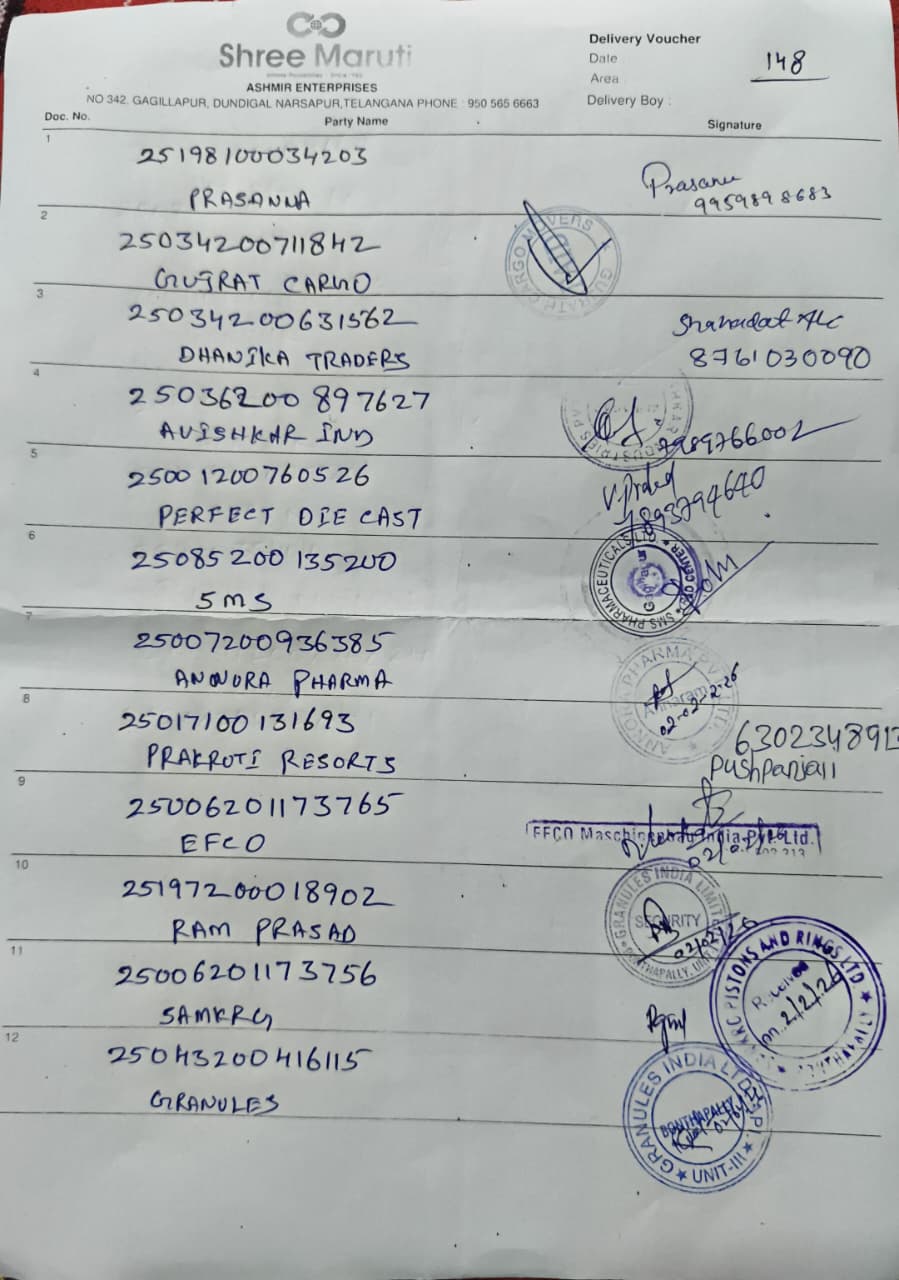 Shree Maruti
ASHMIR ENTERPRISES
NO 342. GAGILLAPUR, DUNDIGAL NARSAPUR,TELANGANA PHONE : 950 565 6663
Delivery Voucher
Date
148
Area
Delivery Boy :
Doc. No.
Party Name
Signature
1
25198100034203
PRASANNA
Prasanu
9959898683
2
25034200711842
GUJRAT CARGO
GUJRATH CARGO MOVERS
3
25034200631562
DHANIKA TRADERS
8761030090
4
25036200897627
AVISHKAR IND
7989766002
5
25001200760526
PERFECT DIE CAST
7893794640
6
25085200135200
SMS
SMS PHARMACEUTICALS LTD
7
25007200936385
ANNORA PHARMA
PHARMA PVT. LTD.
02-02-2-26
8
25017100131693
PRAKROTI RESORTS
6302348913
Pushpanjali
9
25006201173765
EFCO
EFCO Maschinenbau India Pvt. Ltd.
10
25197200018902
RAM PRASAD
GRANULES INDIA LIMITED
SECURITY
BONTHAPALLY, UNIT
02/02/26
11
25006201173756
SAMKRG
PISTONS AND RINGS LTD.
Received
on 2/2/26
12
25043200416115
GRANULES
GRANULES INDIA LTD
BONTHAPALLY
UNIT-III